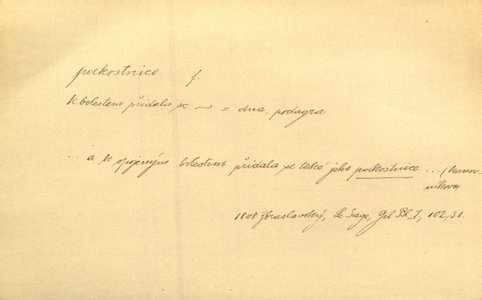 podkostnice f.
k bolestem přidala se ~ = dna, podagra
a k spojeným bolestem přidala se také jeho podkostnice ... (kanov-
níkova
1808 Zbraslavský, Le Sage, Gil Bl. I, 102, 31.